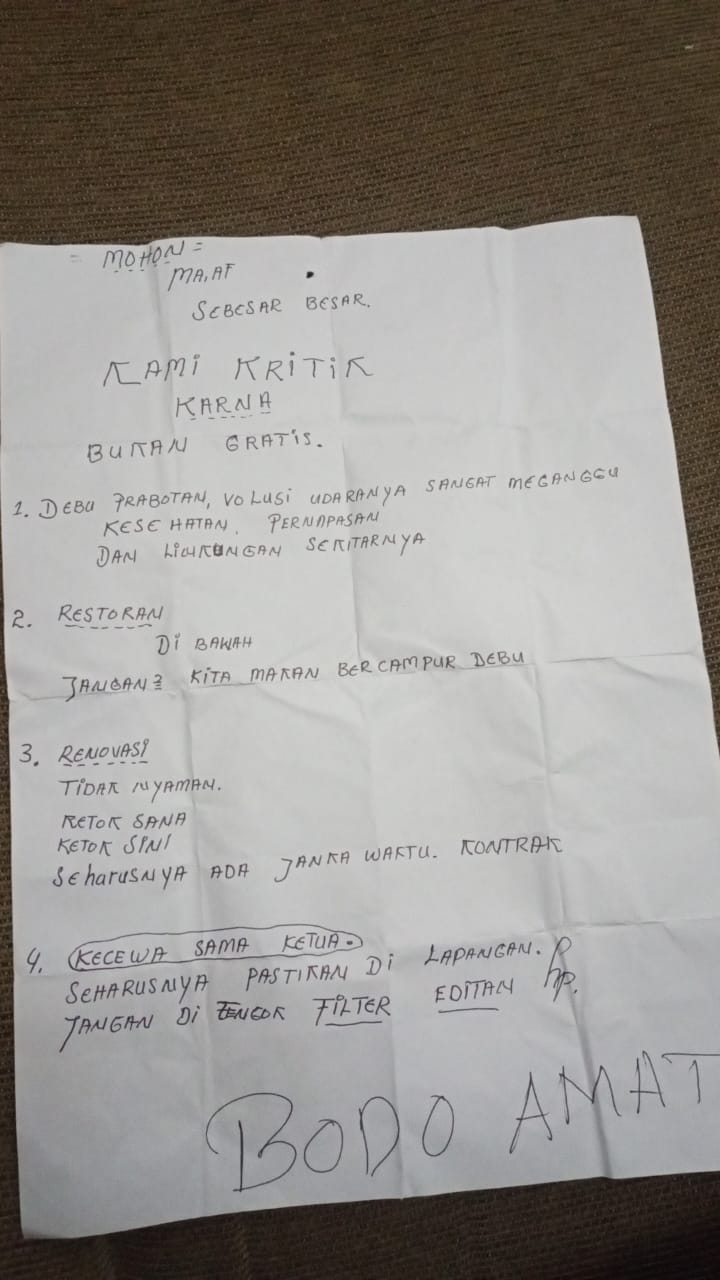 = MOHON =
MA,AF
SEBESAR BESAR.
KAMi KRiTiK
KARNA
BUKAN GRATiS.
1. DEBU PRABOTAN, VOLUSi UDARANYA SANGAT MEGANGGU
KESEHATAN. PERNAPASAN
DAN LiCHKUNGAN SEKITARNYA
2. RESTORAN
Di BAWAH
JANGAN2 KITA MAKAN BERCAMPUR DEBU
3. RENOVASi
TiDAK NYAMAN.
KETOK SANA
KETOK SINI
SEharusNYA ADA JANKA WAKTU. KONTRAK
4. KECEWA SAMA KETUA.
SEHARUSNYA PASTIKAN Di LAPANGAN.
JANGAN Di TENGOK FILTER EDITAN hp.
BODO AMAT